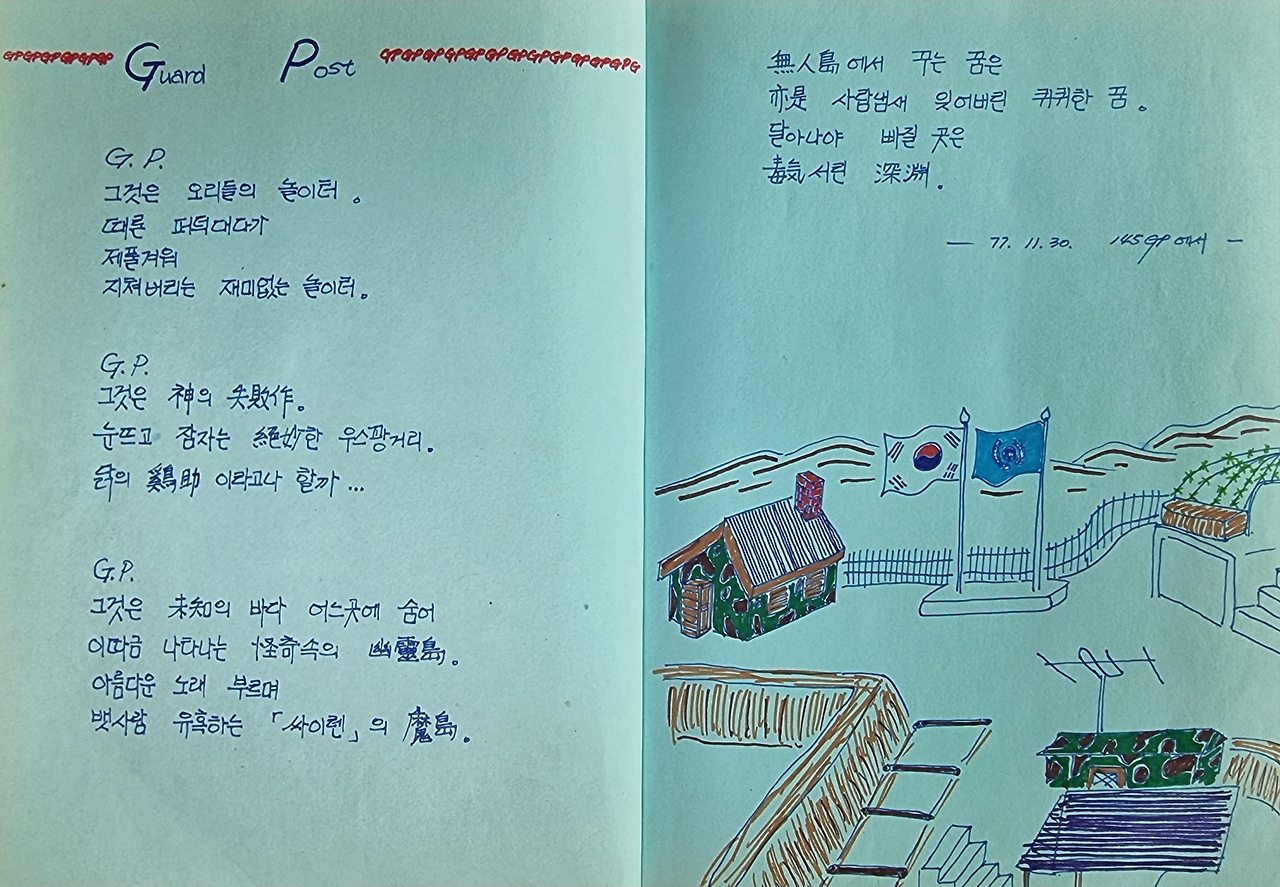 GPGPGPGPGPGP Guard Post GPGPGPGPGPGPGPGPGPGPGPGPG
G. P.
그것은 오리들의 놀이터.
때론 퍼덕대다가
제풀겨워
지쳐버리는 재미없는 놀이터.
G. P.
그것은 神의 失敗作.
눈뜨고 잠자는 絕妙한 우스꽝거리.
닭의 鷄助 이라고나 할까...
G.P.
그것은 未知의 바다 어느곳에 숨어
이따금 나타나는 怪奇속의 幽靈島.
아름다운 노래 부르며
뱃사람 유혹하는 「싸이렌」의 魔島.
無人島에서 꾸는 꿈은
亦是 사람냄새 잊어버린 퀴퀴한 꿈.
달아나야 빠질 곳은
毒気서린 深淵.
— 77. 11. 30. 145GP에서 —